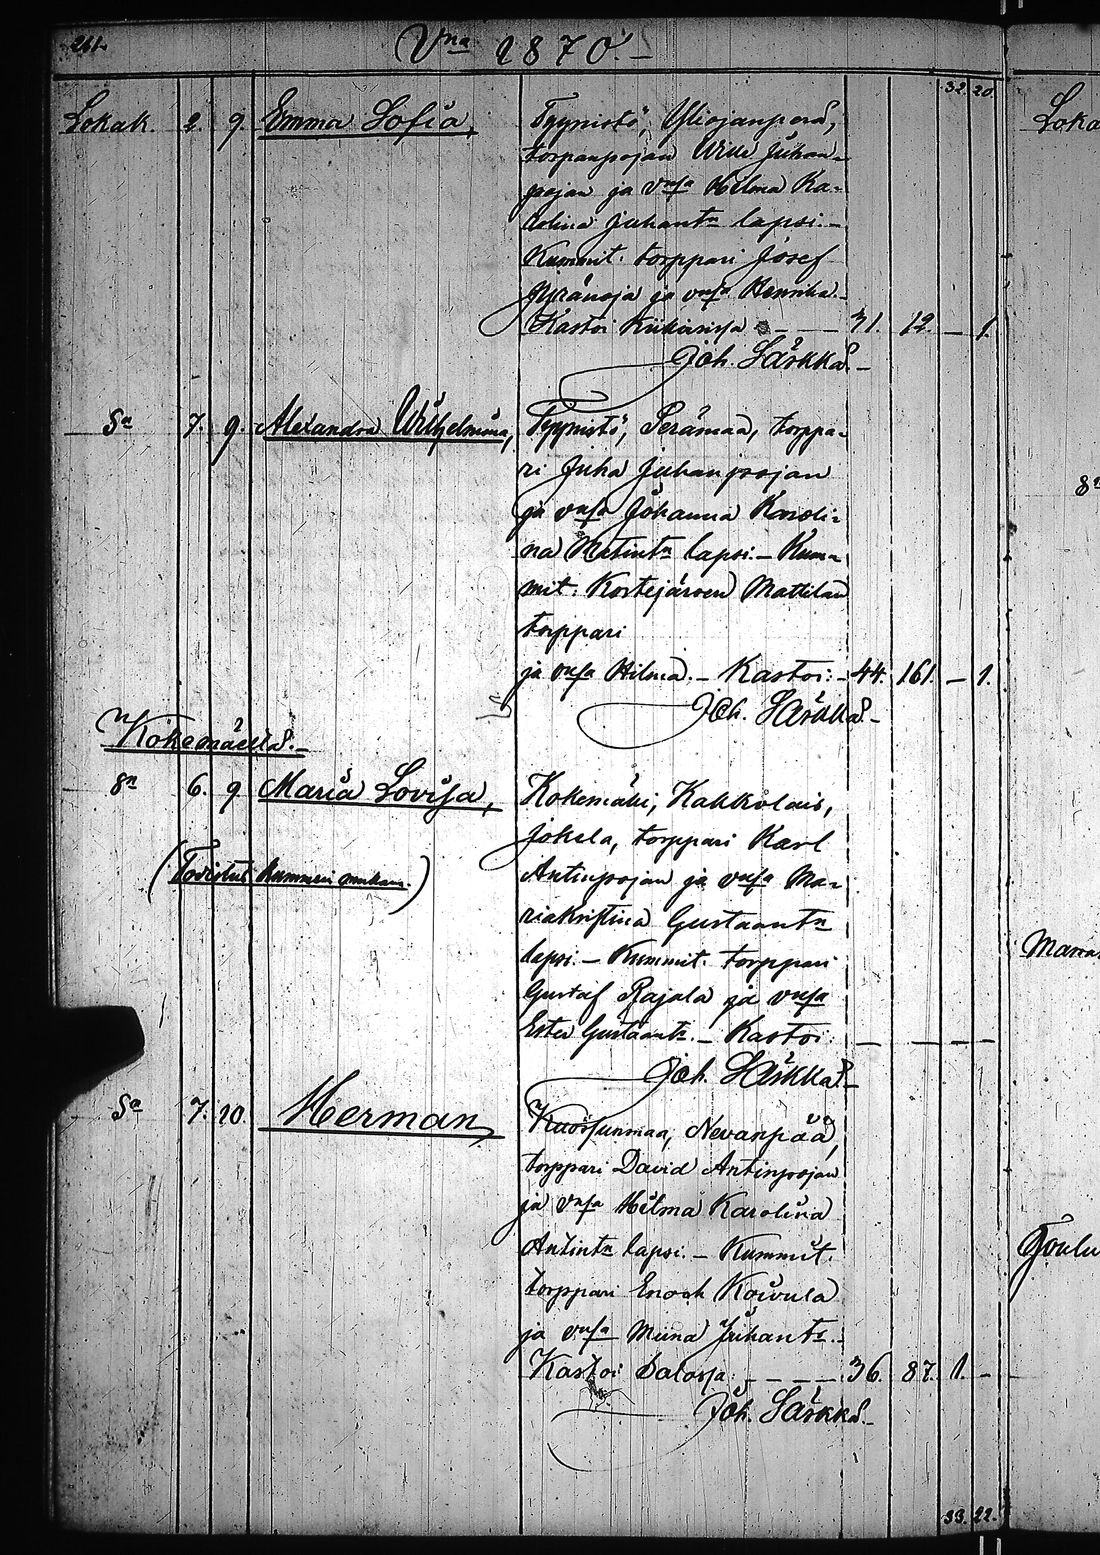 261.
Vna 1870.
32. 20.
Lokak 2. 9. Emma Sofia,
Tyynistö, Yliojanperä,
torpanpojan Wille Juhan-
pojan ja vmsa Hilma Ka-
rolina Juhantn lapsi. -
Kummit: torppari Josef
Myränoja ja vmsa Henrika. -
Kastoi Kiikaissa - - - 31. 12. - 1.
Joh. Särkkä. -
Sa 7. 9. Alexandra Wilhelmina,
Tyynistö, Perämaa, torppa-
ri Juha Juhanpojan
ja vmsa Johanna Karoli-
na Matintn lapsi. - Kum-
mit: Kortejärven Mattilan
torppari
ja vmsa Hilma. - Kastoi: - 44. 161. - 1.
Joh. Särkkä. -
Kokemäellä. -
8n 6. 9. Maria Lovisa,
Kokemäki, Kakkolais,
Jokela, torppari Karl
(Todistus Kummien mukaan.)
Antinpojan ja vmsa Ma-
riakristina Gustaantn
lapsi. - Kummit: torppari
Gustaf Rajala ja vmsa
Ester Gustaantr. - Kastoi: - - - -
Joh. Särkkä. -
Sa 7. 10. Herman,
Kuorsunmaa, Nevanpää,
torppari David Antinpojan
ja vmsa Hilma Karolina
Antintn lapsi. - Kummit:
torppari Enoch Koivula
ja vmsa Miina Juhantr. -
Kastoi Salossa: - - - - 36. 87. 1. -
Joh. Särkkä. -
33. 22.
Loka
8n
Marras
Joulu